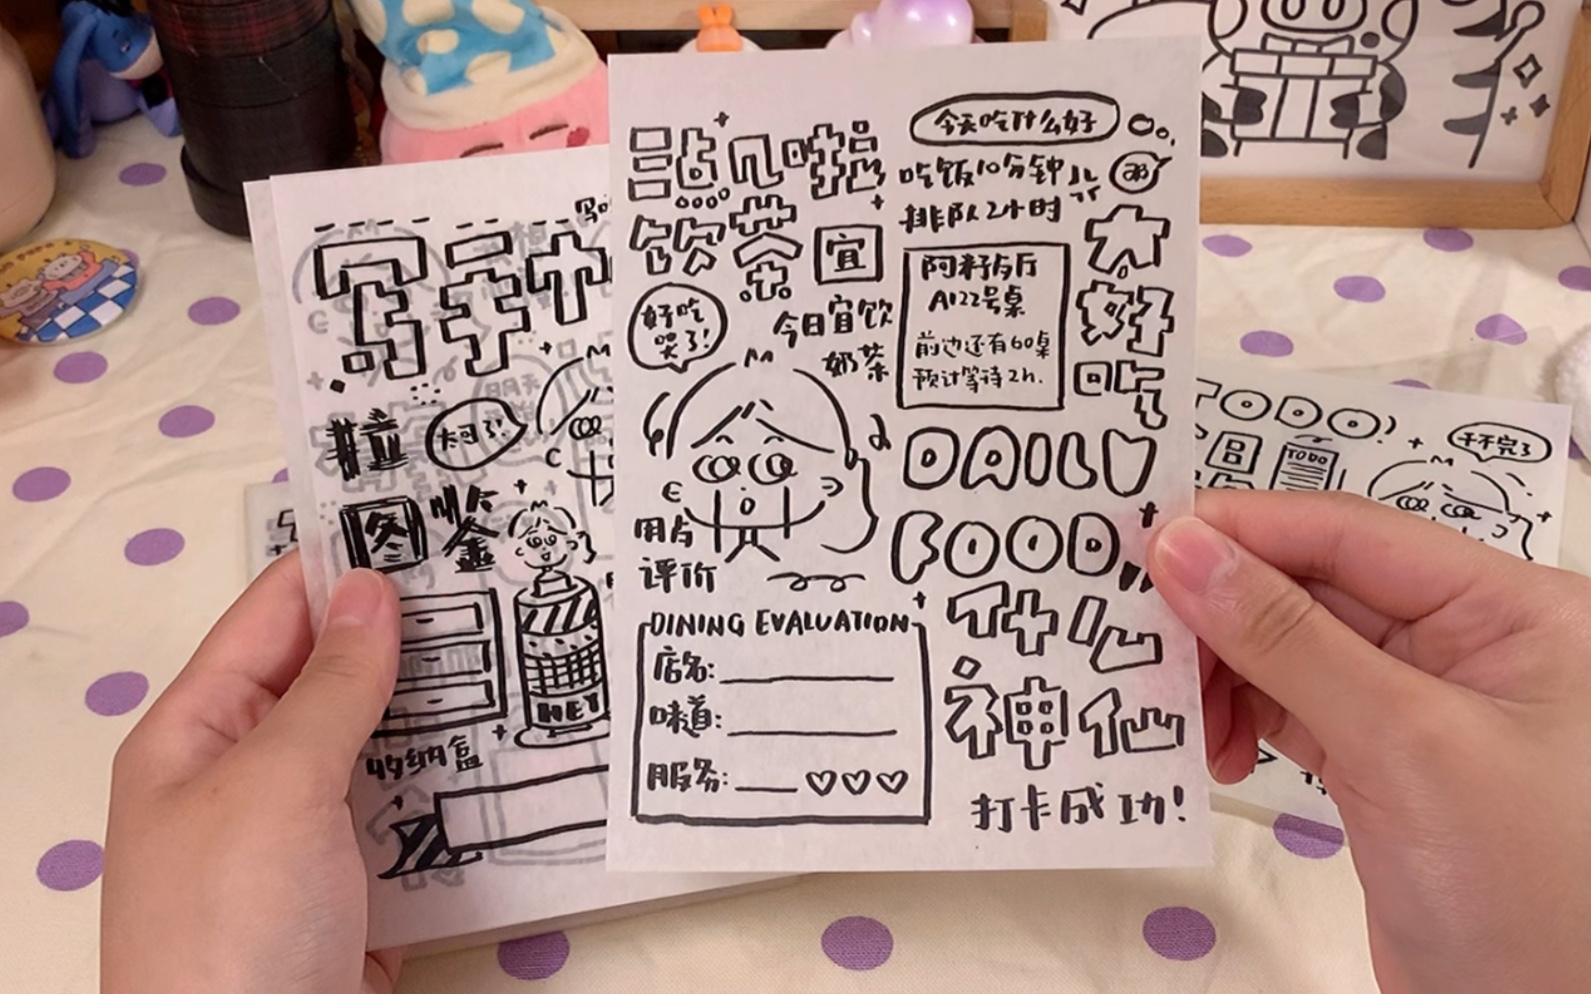 今天吃什么好
吃饭10分钟
排队2小时
饮茶
宜
好吃
哭了!
今日宜饮
奶茶
A122号桌
前边还有60桌
预计等待2h.
太
好
吃
DAILY
FOOD
什么
神仙
打卡成功!
用占
评价
DINING EVALUATION
店名:
味道:
服务:
写手巾
收纳盒
HEY
TODO
TODO
干不完了